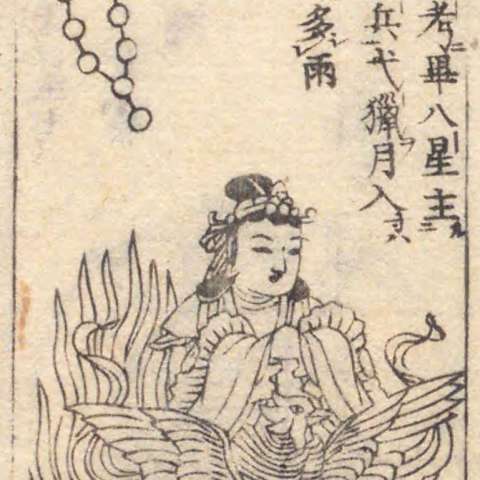 者畢八星主
兵弋獵月入
多雨